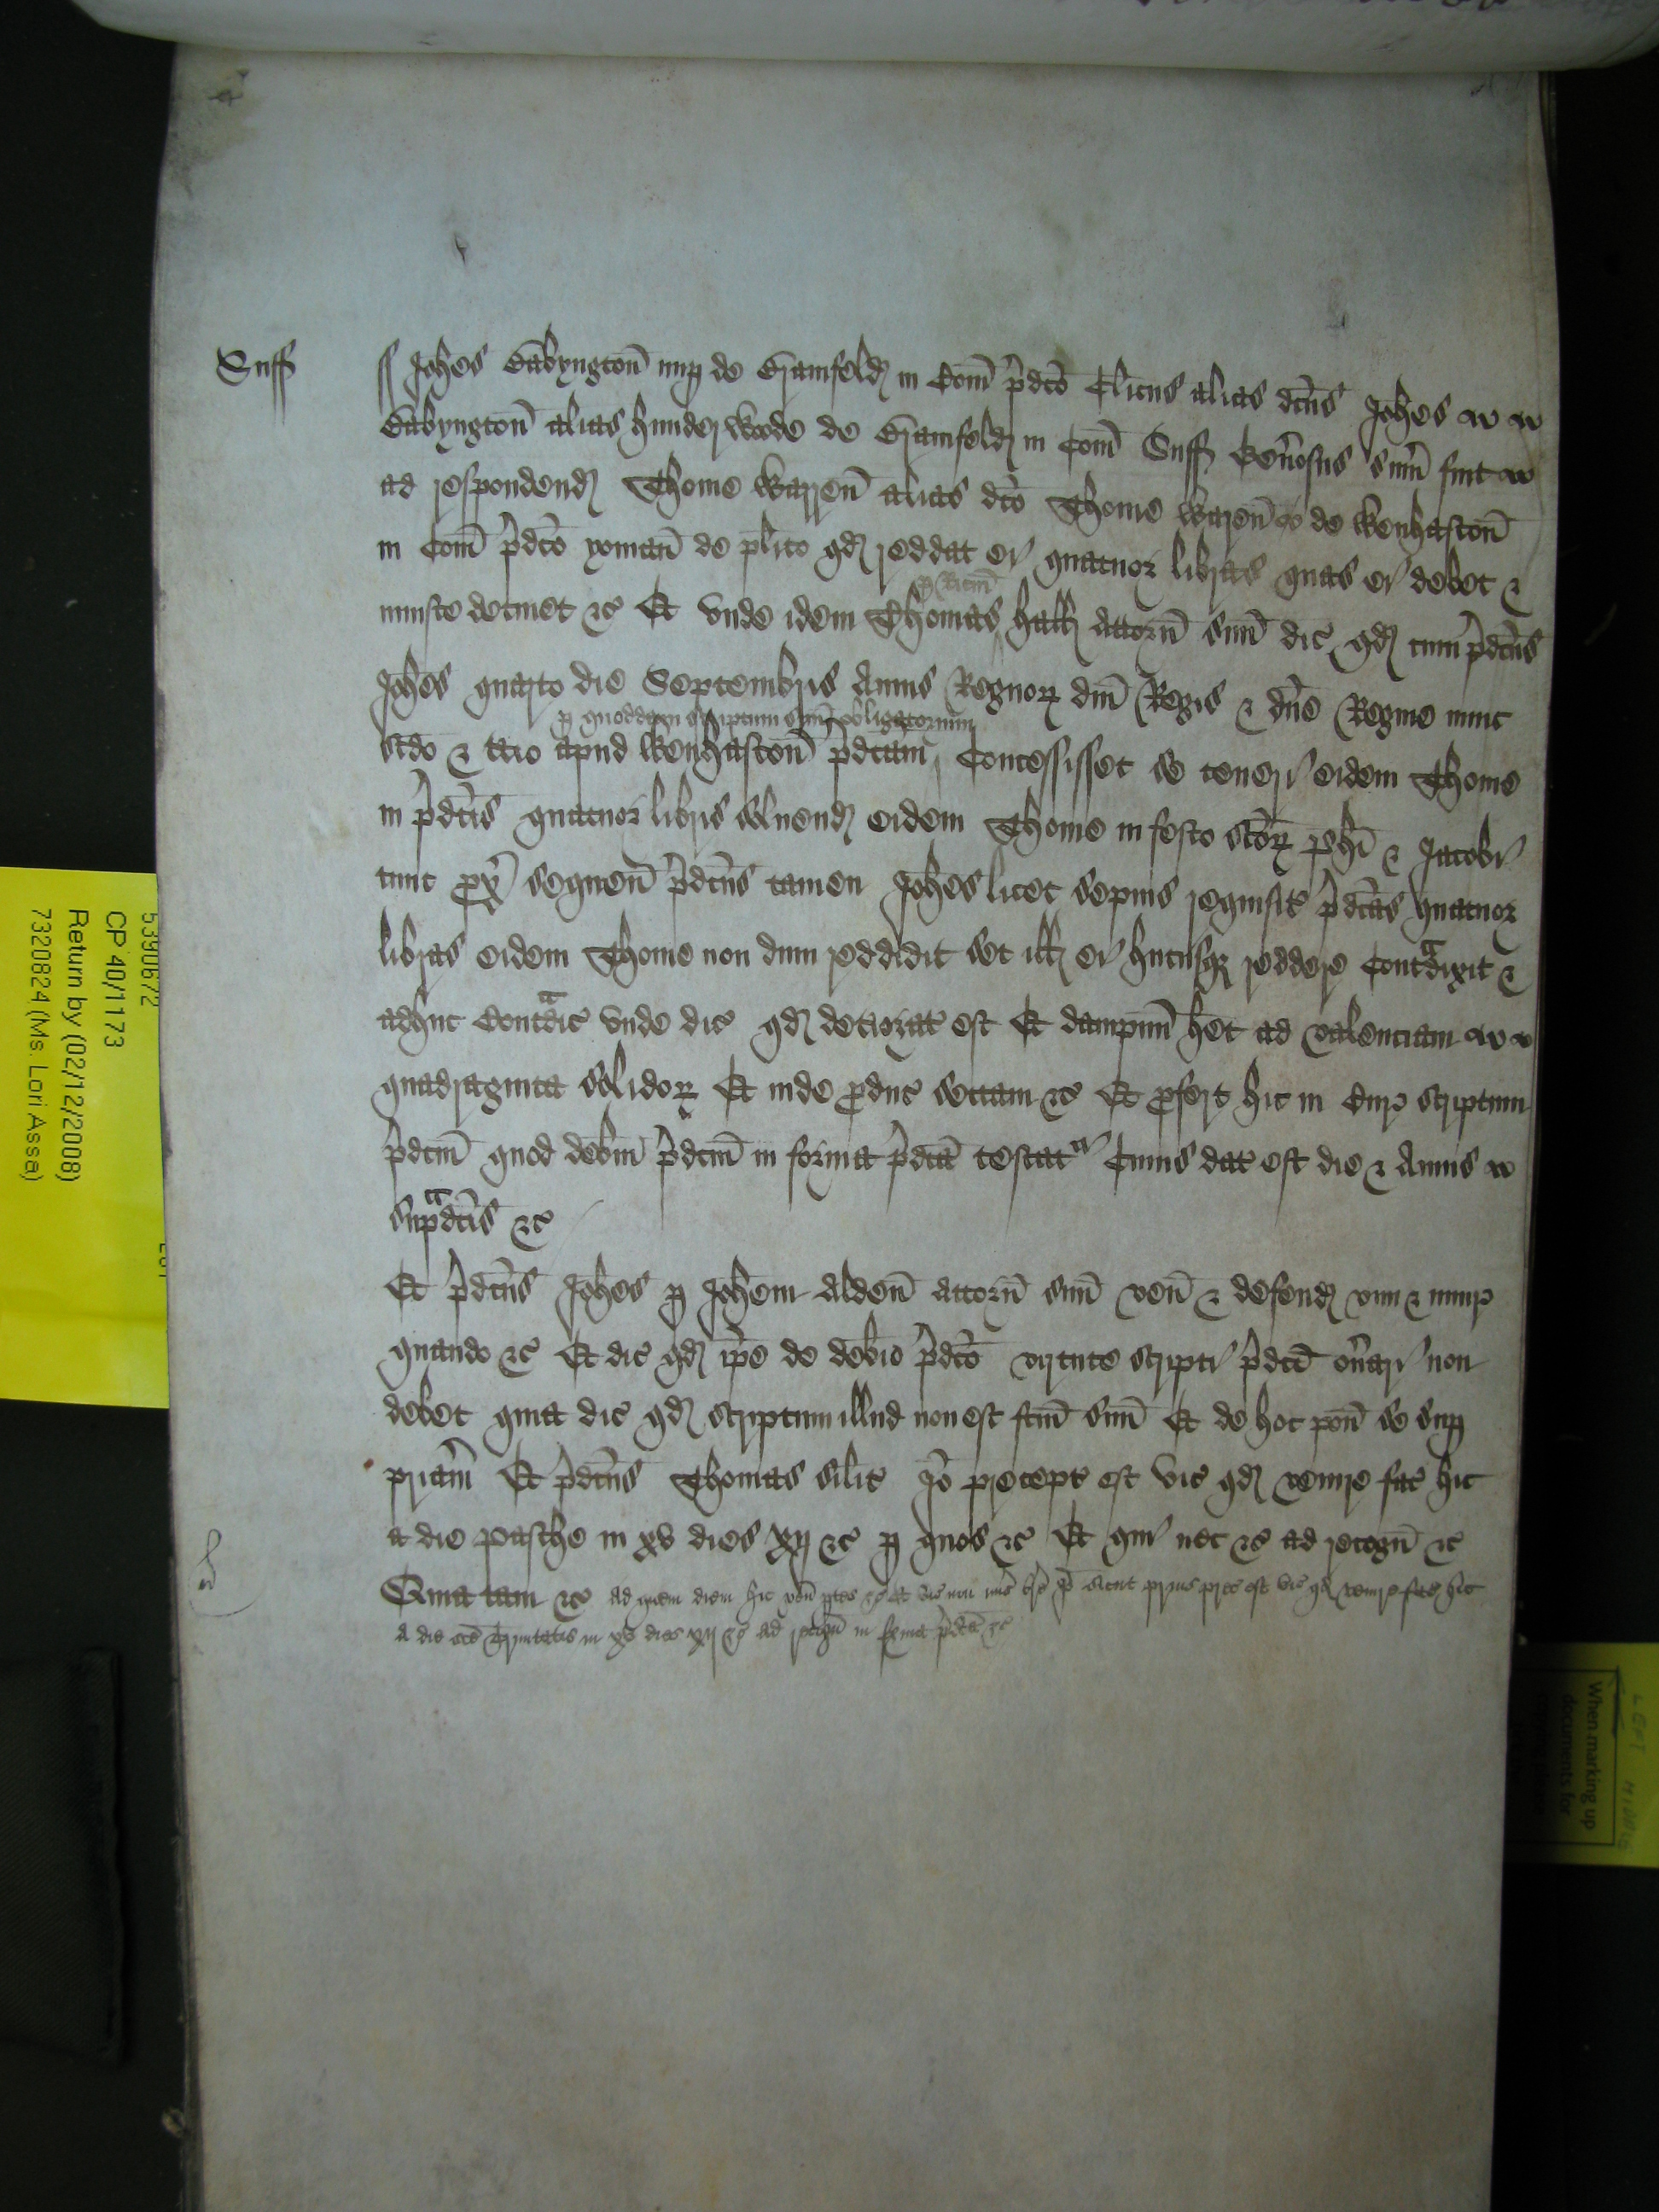 Suff ss Johes Babyngton nup de Bramfeld in Com p̄dc̄o Cl̄icus alias dc̄us Johes
Babyngton alias hunderwoode de Bramfeld in Com Suff Gen̄osus sum̄ fuit
ad respondend Thome Warren̄ alias dc̄o Thome Waren̄ de Wenhaston̄
in Com̄ p̄dc̄o yoman̄ de plīto qd reddat ei quatuor libras quas ei debet &
iniuste detinet &c Et unde idem Thomas p Ric̄m hall Attorn̄ suū dic̄ qd cum p̄dc̄us
Johes quarto die Septembris Annis Regnor̄ dn̄i Regis & dn̄e Regine nunc
sc̄do & t̄cio apud Wenhaston̄ p̄dc̄am p quoddam scriptum suū obligatorium Concessisset se teneri eidem Thome
in p̄dc̄is quatuor libris solvend eidem Thome in festo sc̄or̄ Ph̄i & Jacobi
tunc px̄ sequen̄ p̄dc̄us tamen Johes licet sepius requisit̄ p̄dc̄as quatuor
libras eidem Thome non dum reddidit set ill ei hucusq̄ reddere Contᵃdixit &
adhuc Contᵃdic̄ unde dic̄ qd deteriorat̄ est Et dampnū het ad valenciam
quadraginta solidor̄ Et inde p̄duc̄ sectam &c Et p̄fert hic in Cur̄ scriptum
p̄dc̄m̄ quod debm̄ p̄dc̄m̄ in forma p̄dc̄a testatʳ Cuius dat̄ est die & Annis
supᵃdc̄is &c
Et p̄dc̄us Johes p Johem Alden̄ attorn̄ suū ven̄ & defend vim & iniur̄
quando &c Et dic̄ qd ip̄e de debīo p̄dc̄o virtute scripti p̄dc̄i on̄ari non
debet quia dic̄ qd scriptum illud non est fc̄m̄ suū Et de hoc pon̄ se sup
pr̄iam̄ Et p̄dc̄us Thomas sil̄it̄ Jō precept̄ est vic̄ qd venire fac̄ hic
a die Pasche in xv dies xij &c p quos &c Et qui nec &c ad recogn̄ &c
Quia tam &c Ad quem diem hic ven̄ ptes &c Et vic̄ non mis̄ br̄e Jō sicut prius prec̄ est vic̄ qd venire fac̄ hic
A die sc̄e Trinitatis in xv dies xij &c ad recogn̄ in forma p̄dc̄a &c
5390672
CP 40/1173
Return by (02/12/2008)
7320824 (Ms. Lori Assa)
LEFT MIDDLE
When marking up
documents for